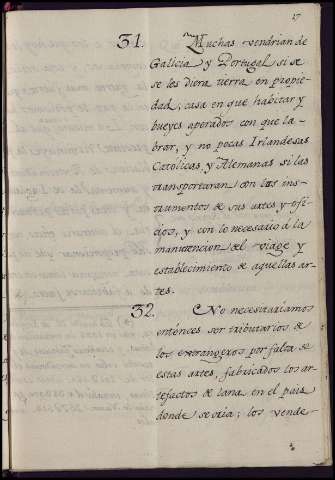 17
31. Muchas vendrian de
Galicia y Portugal si se
se les diera tierra en propie-
dad; casa en que habitar y
bueyes aperados con que la-
brar, y no pocas Irlandesas
Catolicas, y Alemanas si las
transportaran con los ins-
trumentos de sus artes y ofi-
cios, y con lo necesario á la
manutencion del viage y
establecimiento de aquellas ar-
tes.
32. No necesitariamos
entónces ser tributarios de
los extrangeros por falta de
estas artes, fabricados los ar-
tefactos de lana en el pais
donde se cria; los vende-